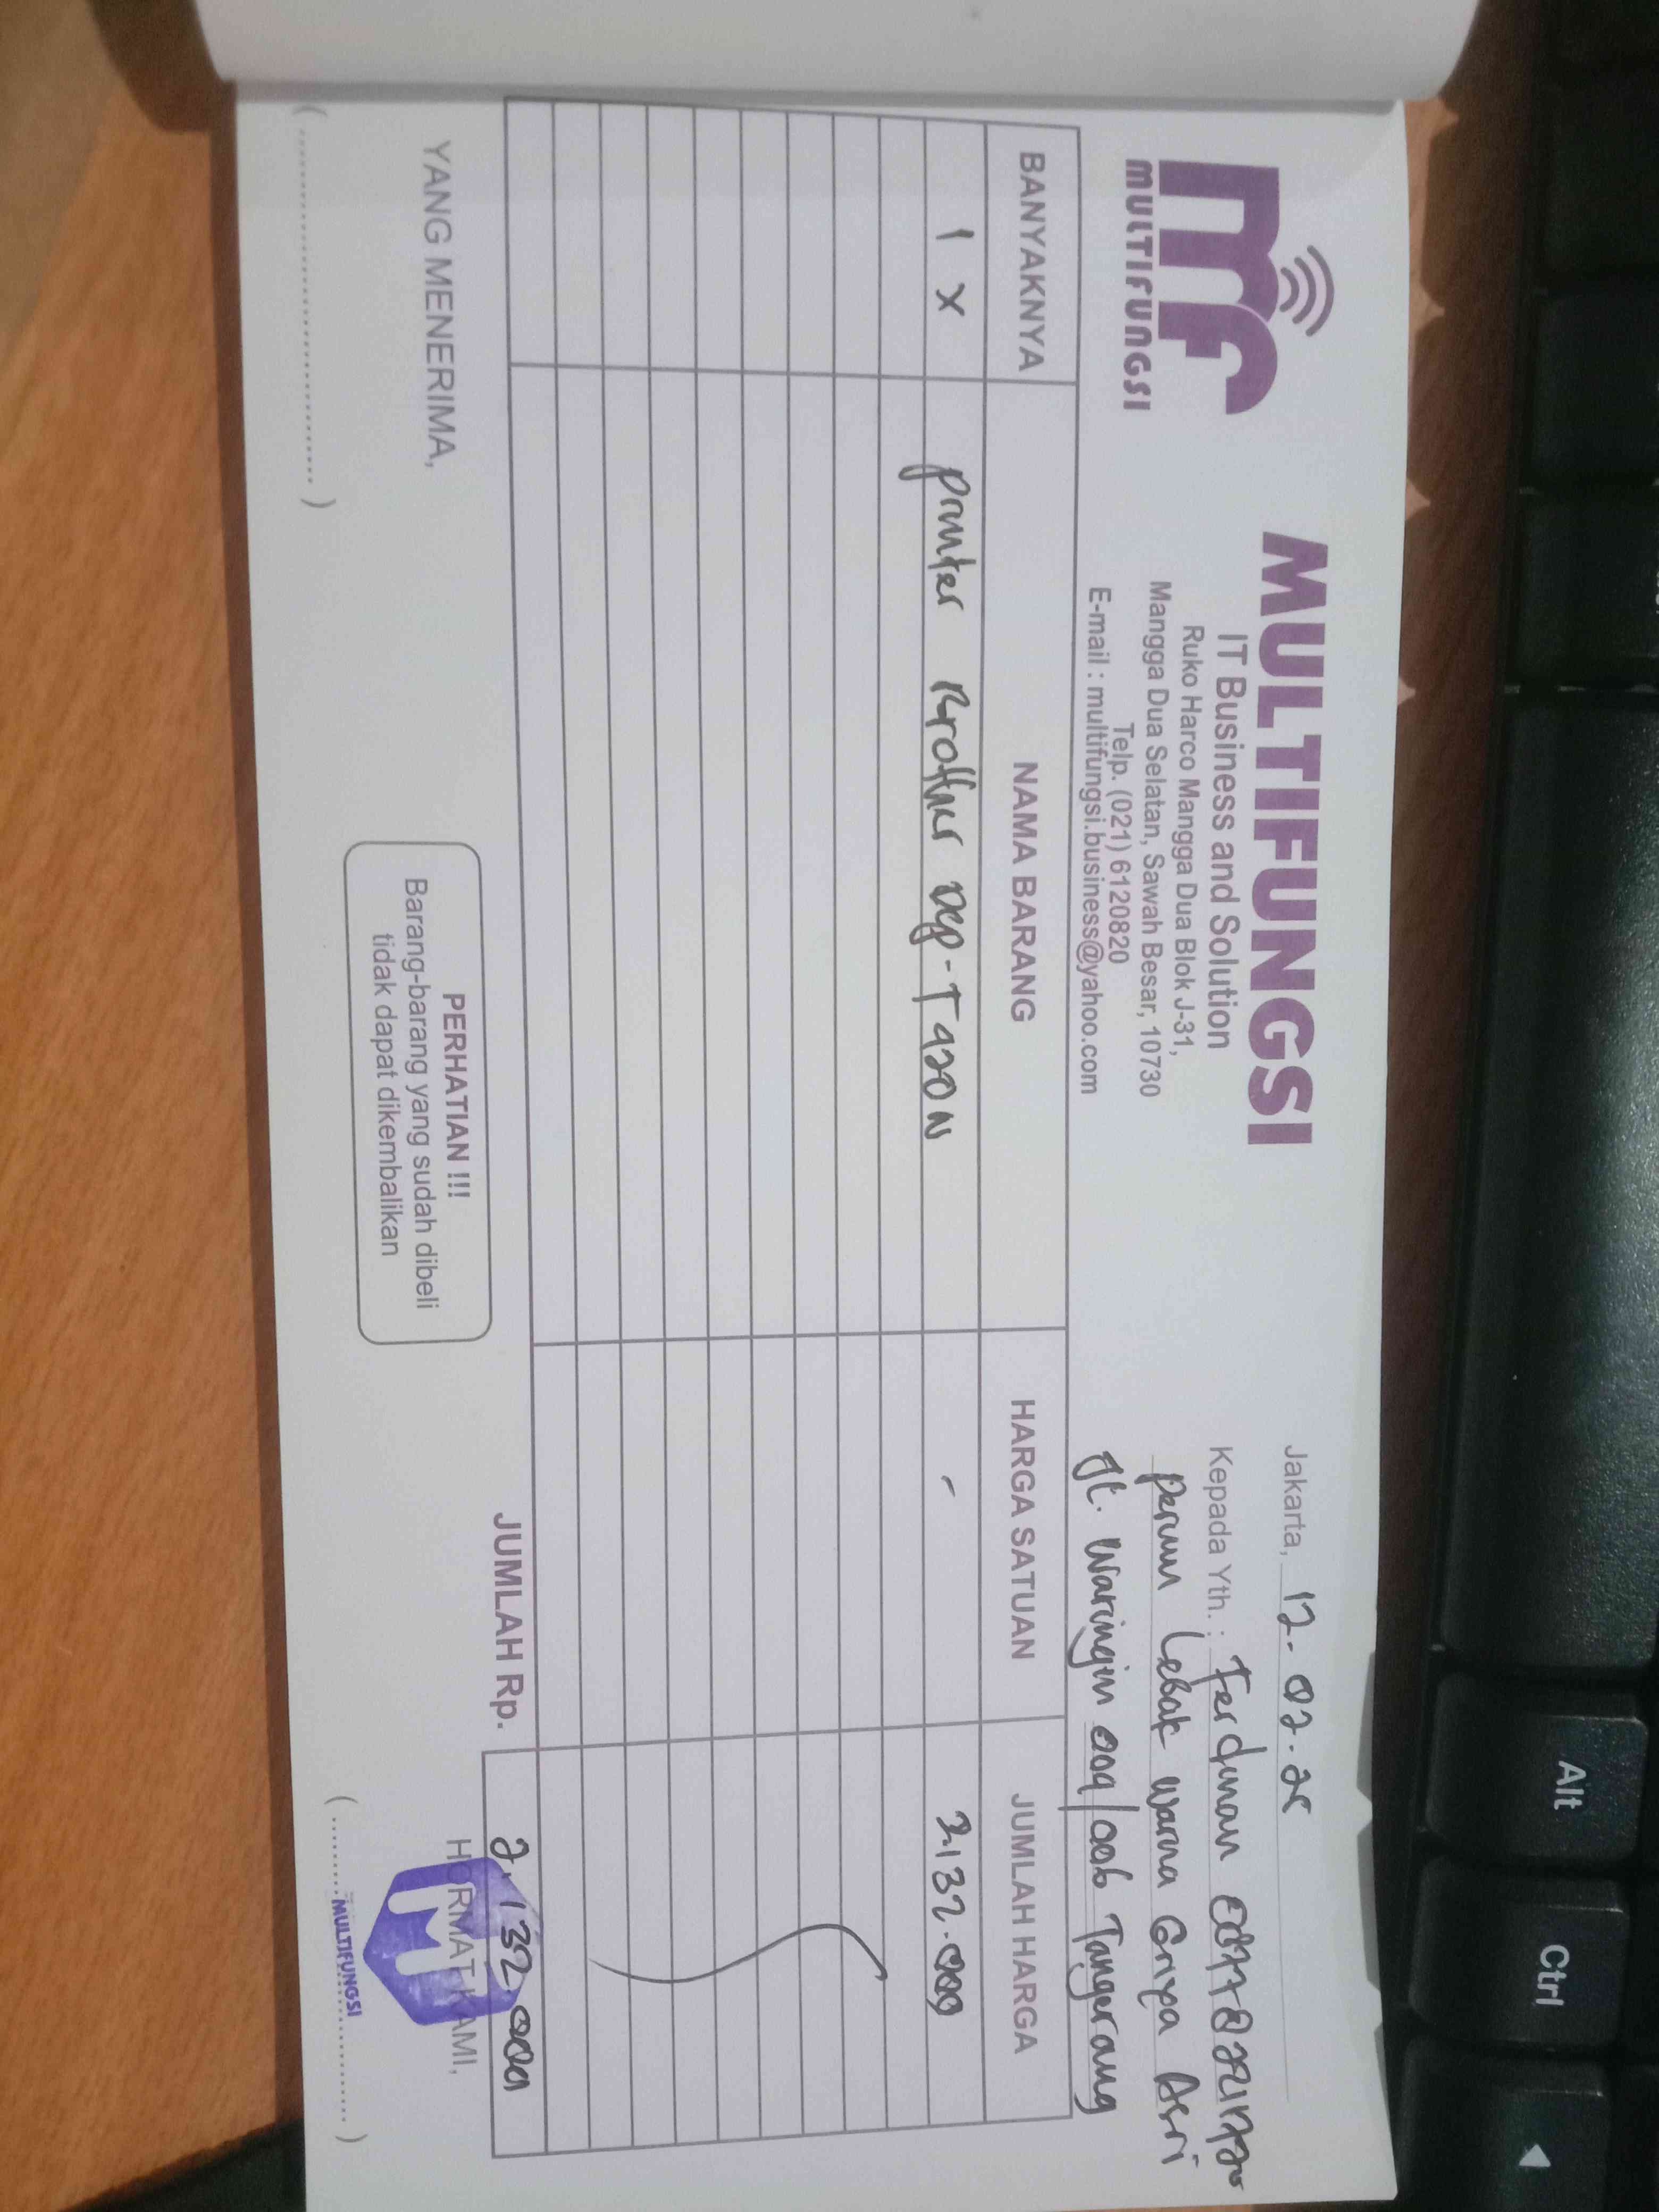 mf
MULTIFUNGSI
MULTIFUNGSI
IT Business and Solution
Ruko Harco Mangga Dua Blok J-31,
Mangga Dua Selatan, Sawah Besar, 10730
Telp. (021) 6120820
E-mail : multifungsi.business@yahoo.com
Jakarta, 12.02.25
Kepada Yth. : Ferdinan
Perum Lebak Warna Griya Asri
Jl. Waringin Tangerang
BANYAKNYA NAMA BARANG HARGA SATUAN JUMLAH HARGA
1 x printer Brother DCP-T420W - 2.132.000
JUMLAH Rp. 2.132.000
YANG MENERIMA,
(..............................)
PERHATIAN !!!
Barang-barang yang sudah dibeli
tidak dapat dikembalikan
HORMAT KAMI,
MULTIFUNGSI
(..............................)
Alt
Ctrl